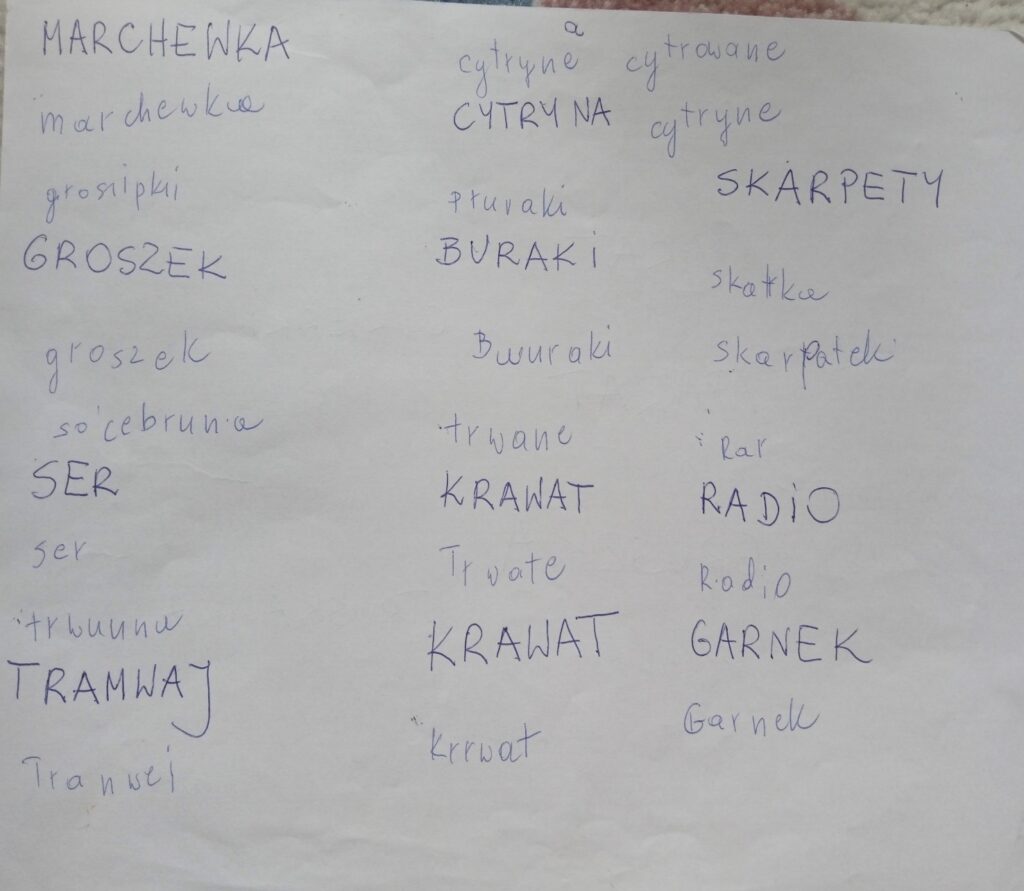 MARCHEWKA
marchewka
grosipki
GROSZEK
groszek
soćebruna
SER
ser
trwunna
TRAMWAJ
Tranwej
a
cytryne cytrowane
CYTRYNA cytryne
pturaki
BURAKI
Bwuraki
trwane
KRAWAT
Trwate
KRAWAT
Krrwat
SKARPETY
skatka
skarpatek
Rar
RADIO
Radio
GARNEK
Garnek